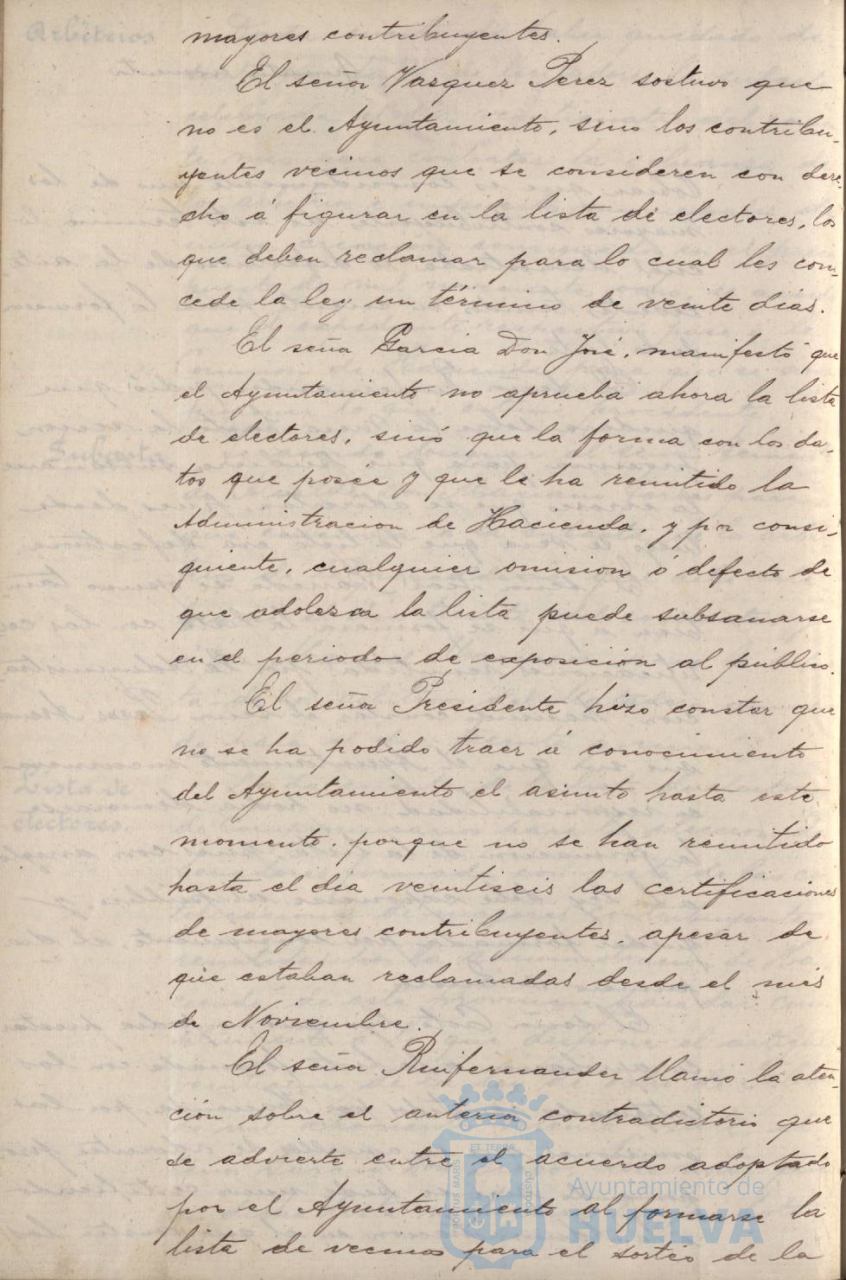 mayores contribuyentes.
El señor Vasquez Perez sostuvo que
no es el Ayuntamiento, sino los contribu-
yentes vecinos que se consideren con dere-
cho á figurar en la lista de electores, los
que deben reclamar para lo cual les con-
cede la ley un término de veinte dias.
El señor Garcia Don José, manifestó que
el Ayuntamiento no aprueba ahora la lista
de electores, sinó que la forma con los da-
tos que posée y que le ha remitido la
Administracion de Hacienda, y por consi-
guiente, cualquier omision ó defecto de
que adolezca la lista puede subsanarse
en el periodo de exposición al público.
El señor Presidente hizo constar que
no se ha podido traer á conocimiento
del Ayuntamiento el asunto hasta este
momento, porque no se han remitido
hasta el dia veintiseis las certificaciones
de mayores contribuyentes, apesar de
que estaban reclamadas desde el mes
de Noviembre.
El señor Ruifernandez llamó la aten-
ción sobre el contradictorio que
se advierte entre el acuerdo adoptado
por el Ayuntamiento al formarse la
lista de vecinos para el sorteo de la
Ayuntamiento de
HUELVA